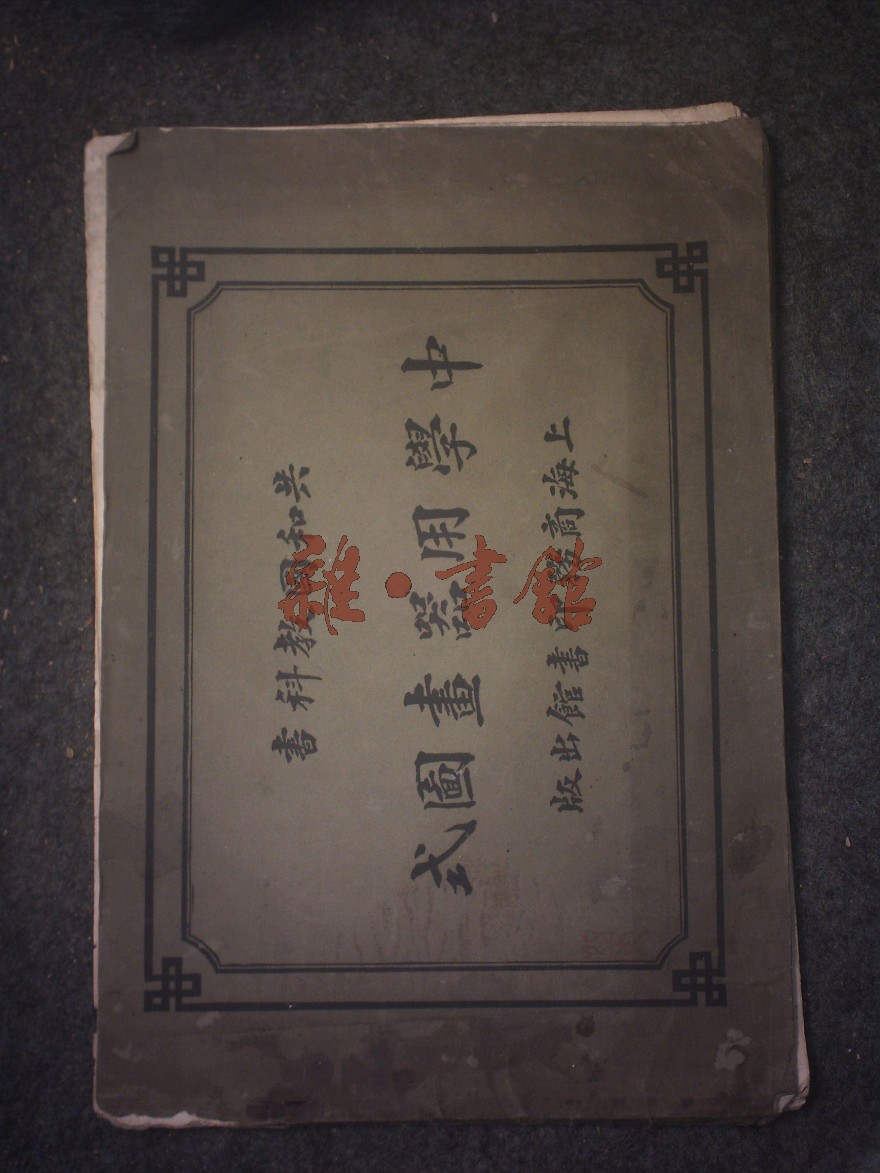 共和國教科書
中學用器畫圖式
上海商務印書館出版